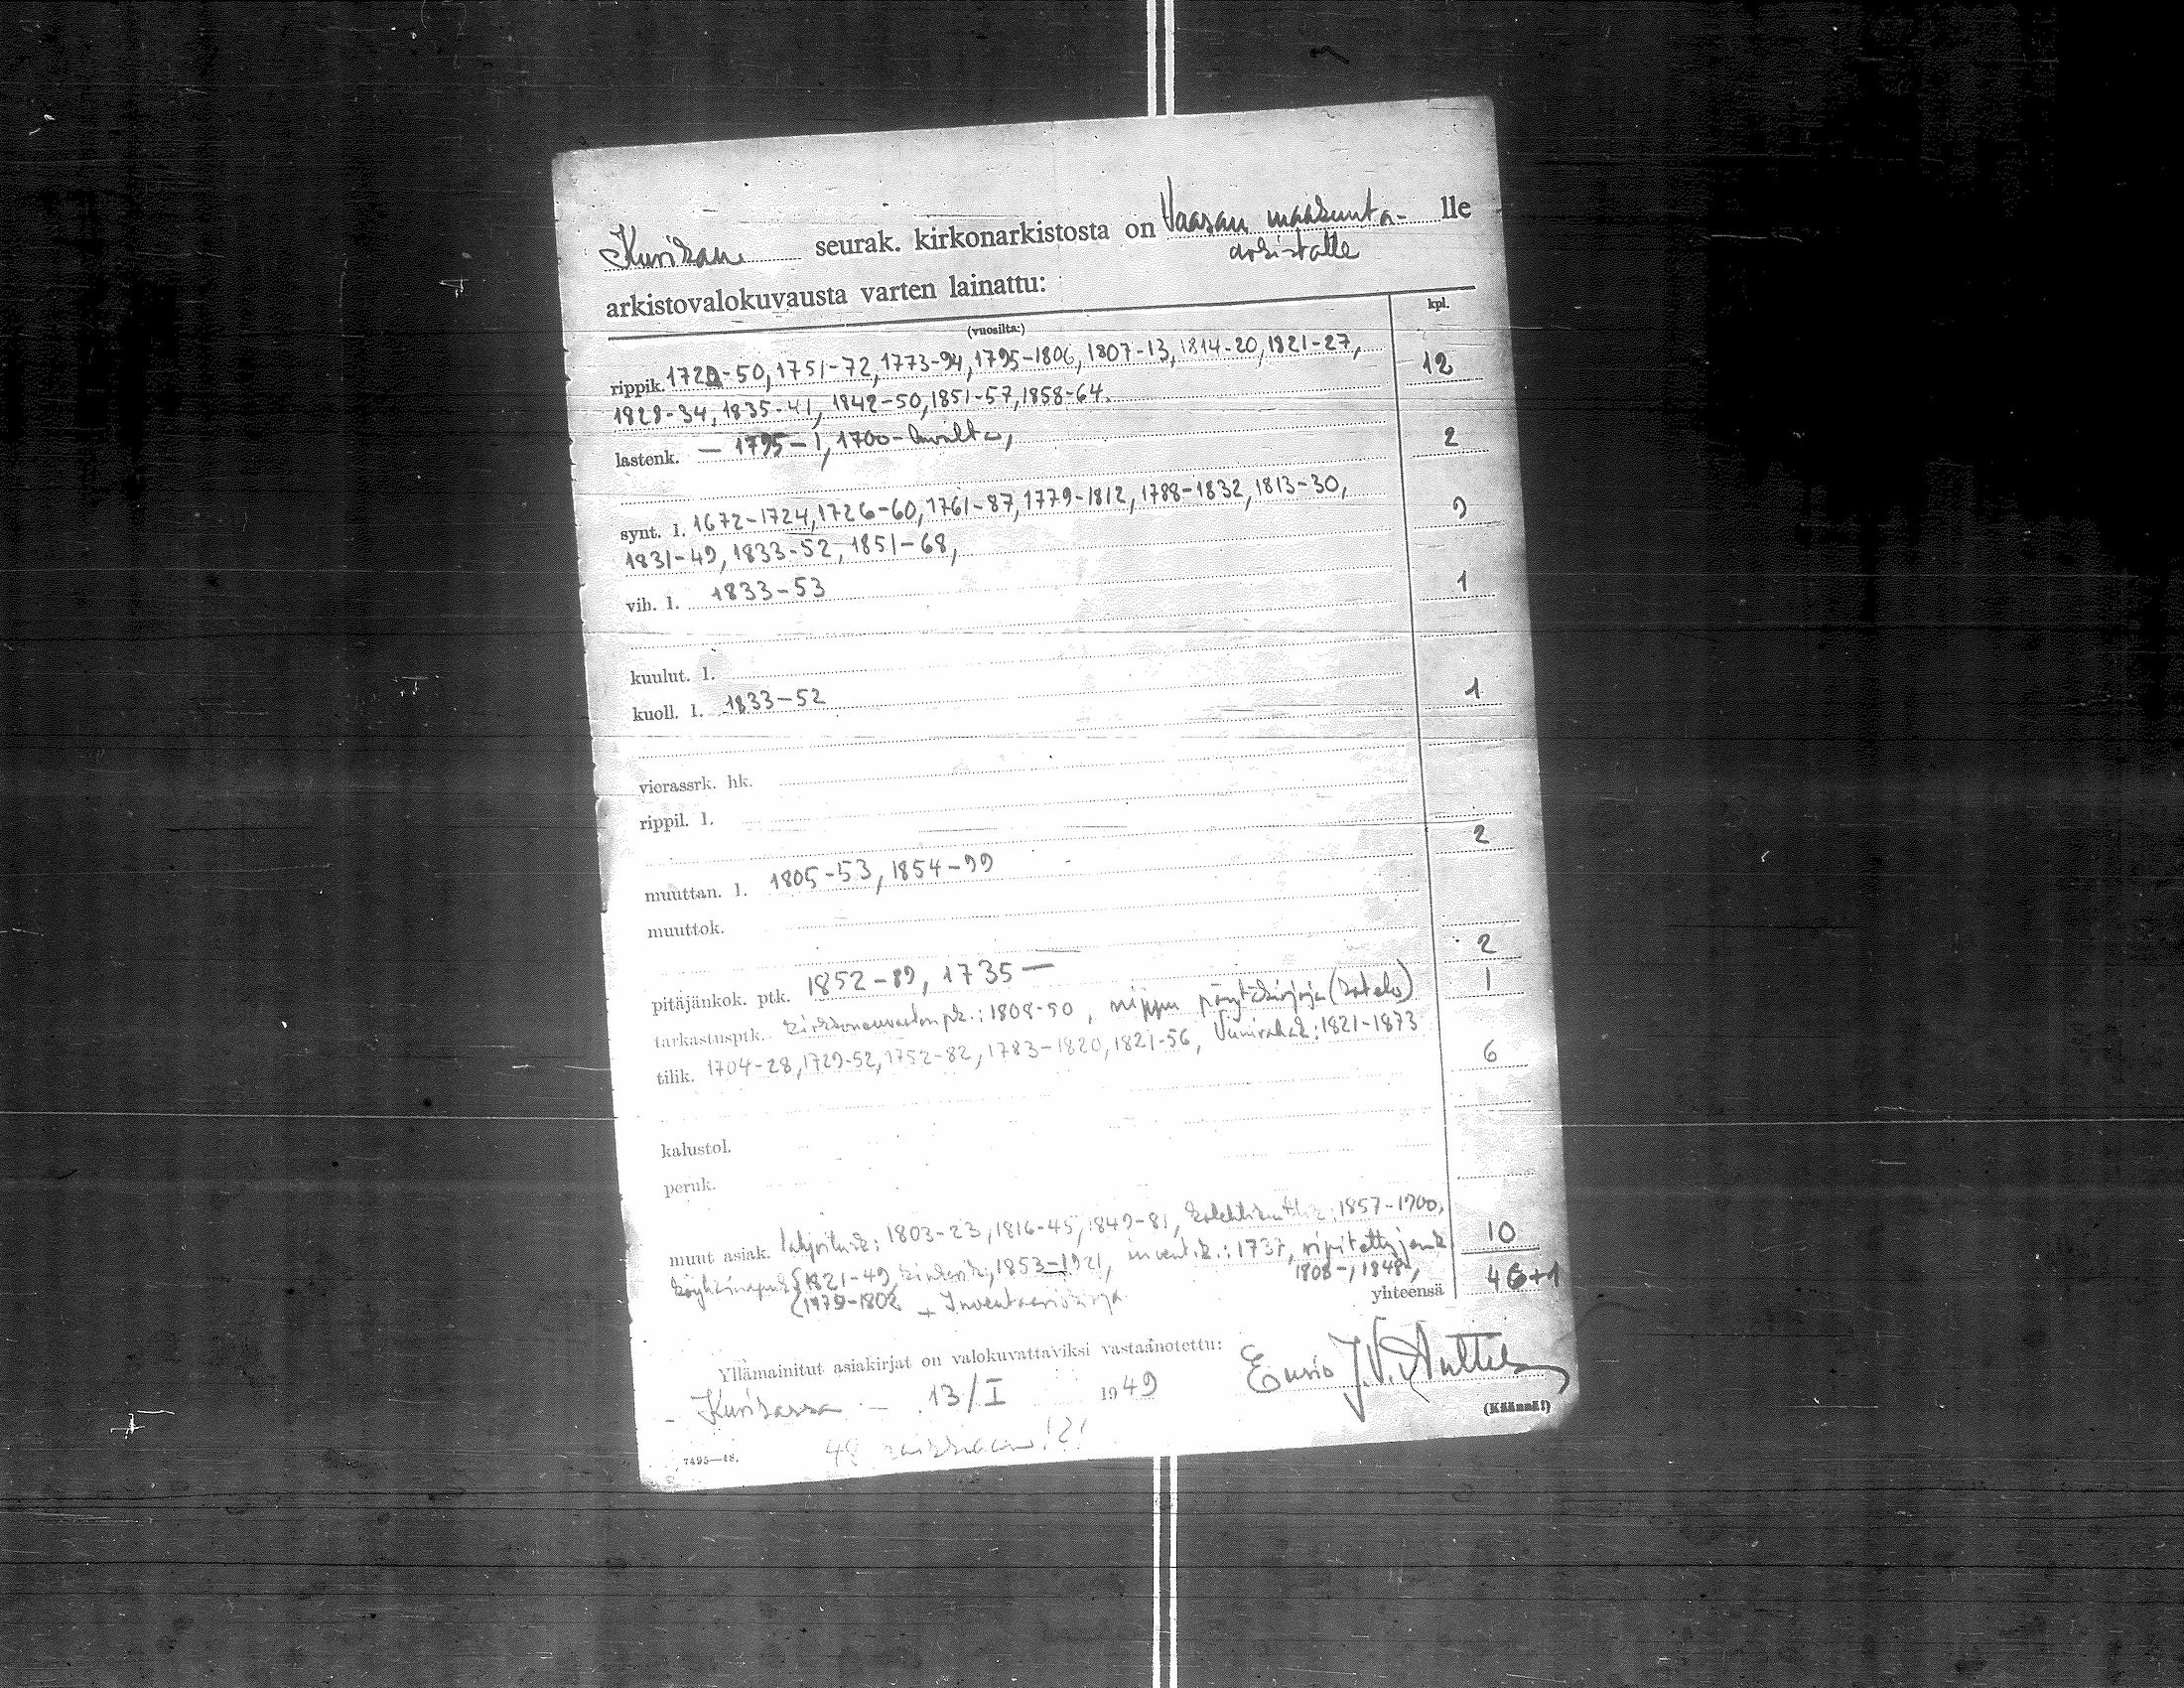 Kurikan seurak. kirkonarkistosta on Vaasan maakunta- lle
arkistolle
arkistovalokuvausta varten lainattu:
(vuosilta:) kpl.
rippik. 1720-50, 1751-72, 1773-94, 1795-1806, 1807-13, 1814-20, 1821-27, 12
1828-34, 1835-41, 1842-50, 1851-57, 1858-64.
lastenk. — 1795 – 1, 1700-luvulta, 2
synt. l. 1672-1724, 1726-60, 1761-87, 1779-1812, 1788-1832, 1813-30, 9
1831-49, 1833-52, 1851-68,
vih. l. 1833-53 1
kuulut. l.
kuoll. l. 1833-52 1
vierassrk. hk.
rippil. l.
muuttan. l. 1805-53, 1854-99 2
muuttok.
pitäjänkok. ptk. 1852-89, 1735— 2
tarkastusptk. kirkonneuvoston pk.: 1808-50, nippu pöytäkirjoja (kotelo) 1
tilik. 1704-28, 1729-52, 1752-82, 1783-1820, 1821-56, Viinirahak: 1821-1873 6
kalustol.
peruk.
muut asiak. lahjoitusk: 1803-23, 1816-45, 1849-81, 1857-1900, 10
1821-49, 1853-1921, invent.k.: 1737, ripitettyjen k
1979-1802 + Inventaariokirja 1808-, 1848,
yhteensä 46+1
Yllämainitut asiakirjat on valokuvattaviksi vastaanotettu:
Kurikassa — 13/I 1949 J.V. Anttila
(Käännä!)
7495—48. 48 kaikkiaan!2!